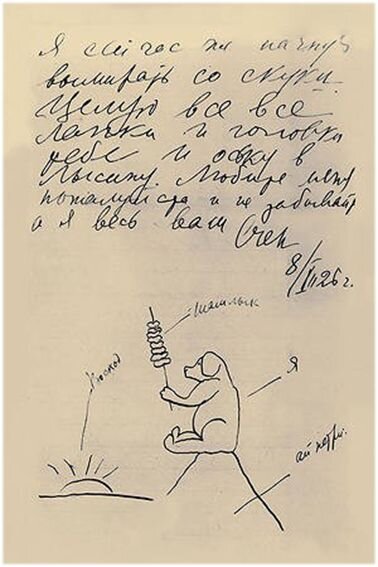 Я сейчас же начну
вымирать со скуки.
Целую все все
лапки и головки
тебе и Оську в
лысину. Любите меня
пожалуйста и не забывайте
а я весь ваш Счен
8/VII 26 г.
шашлык
Восход
Я
ай петри.